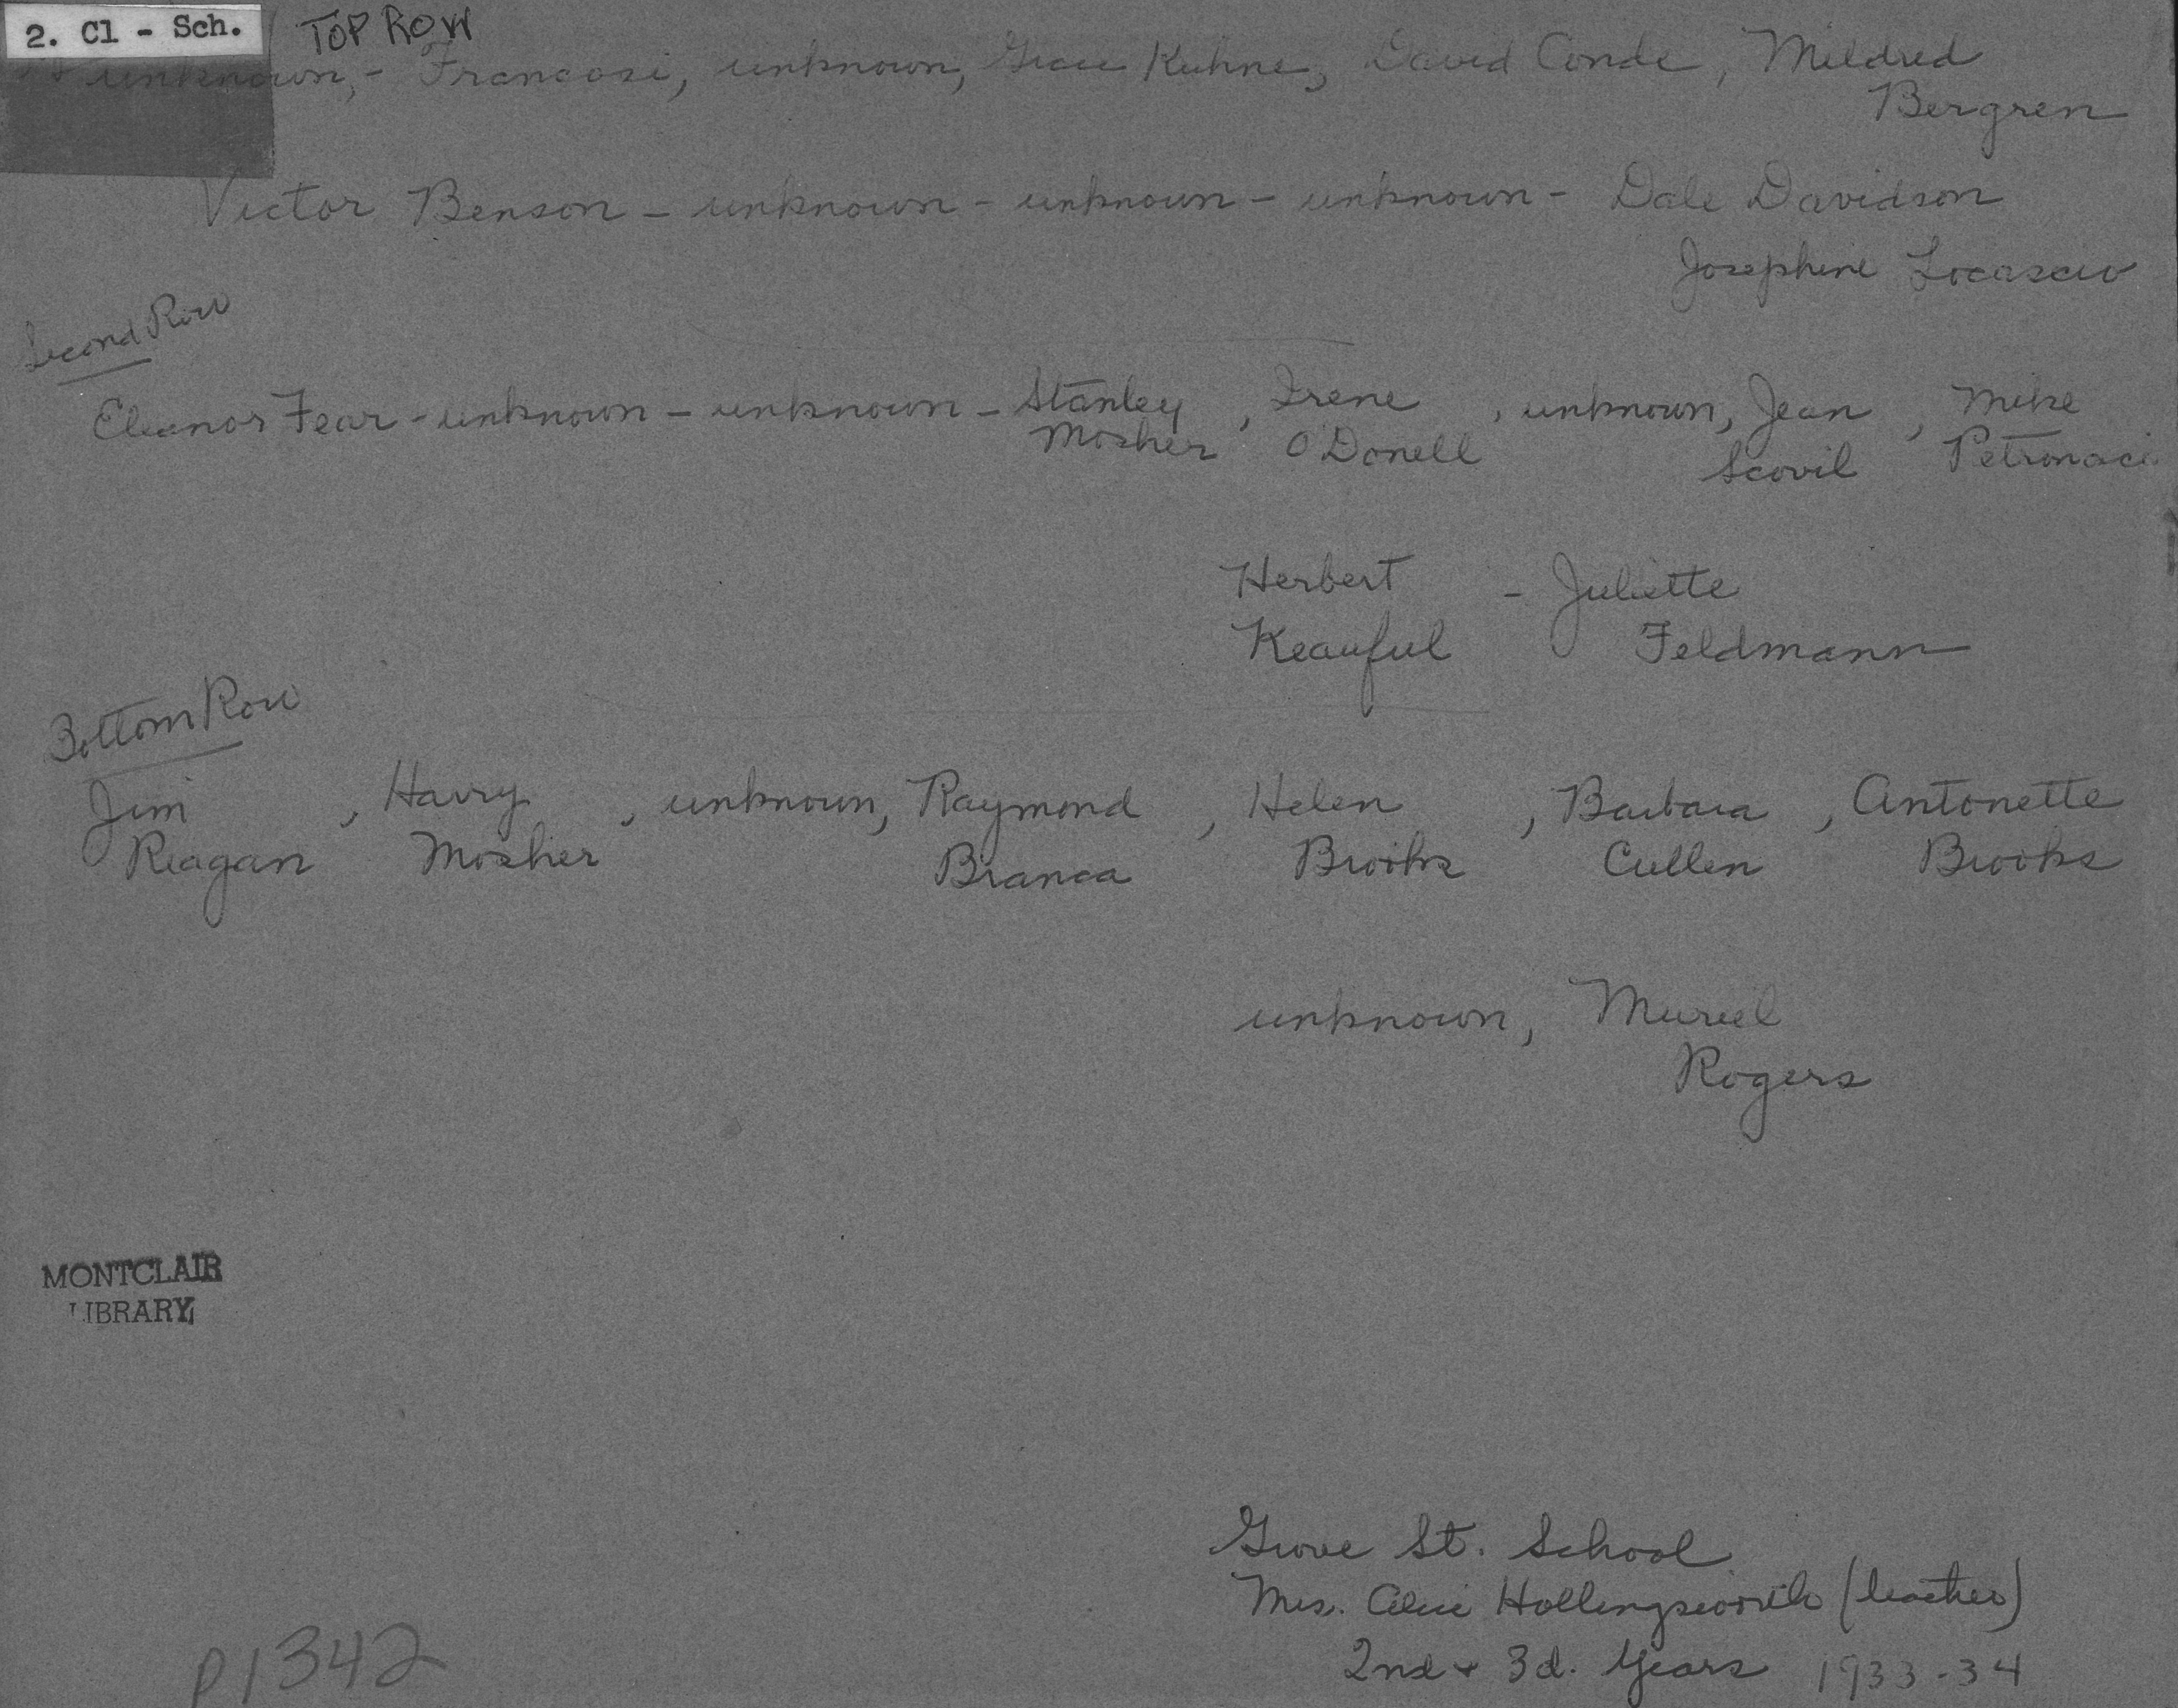 2. Cl - Sch.
TOP ROW
unknown, - Francosi, unknown, Grace Kuhne, David Conde, Mildred
Bergren
Victor Benson - unknown - unknown - unknown - Dale Davidson
Josephine Locascio
Second Row
Eleanor Fear - unknown - unknown - Stanley , Irene , unknown, Jean , Mike
Mosher O'Donell Scovil Petronaci
Herbert - Juliette
Keauful Feldmann
Bottom Row
Jim , Harry , unknown, Raymond , Helen , Barbara , Antonette
Reagan Mosher Branca Brooks Cullen Brooks
unknown, Muriel
Rogers
MONTCLAIR
LIBRARY
Grove St. School
Mrs. Alice Hollingsworth (teacher)
2nd + 3d. Years 1933-34
P1342